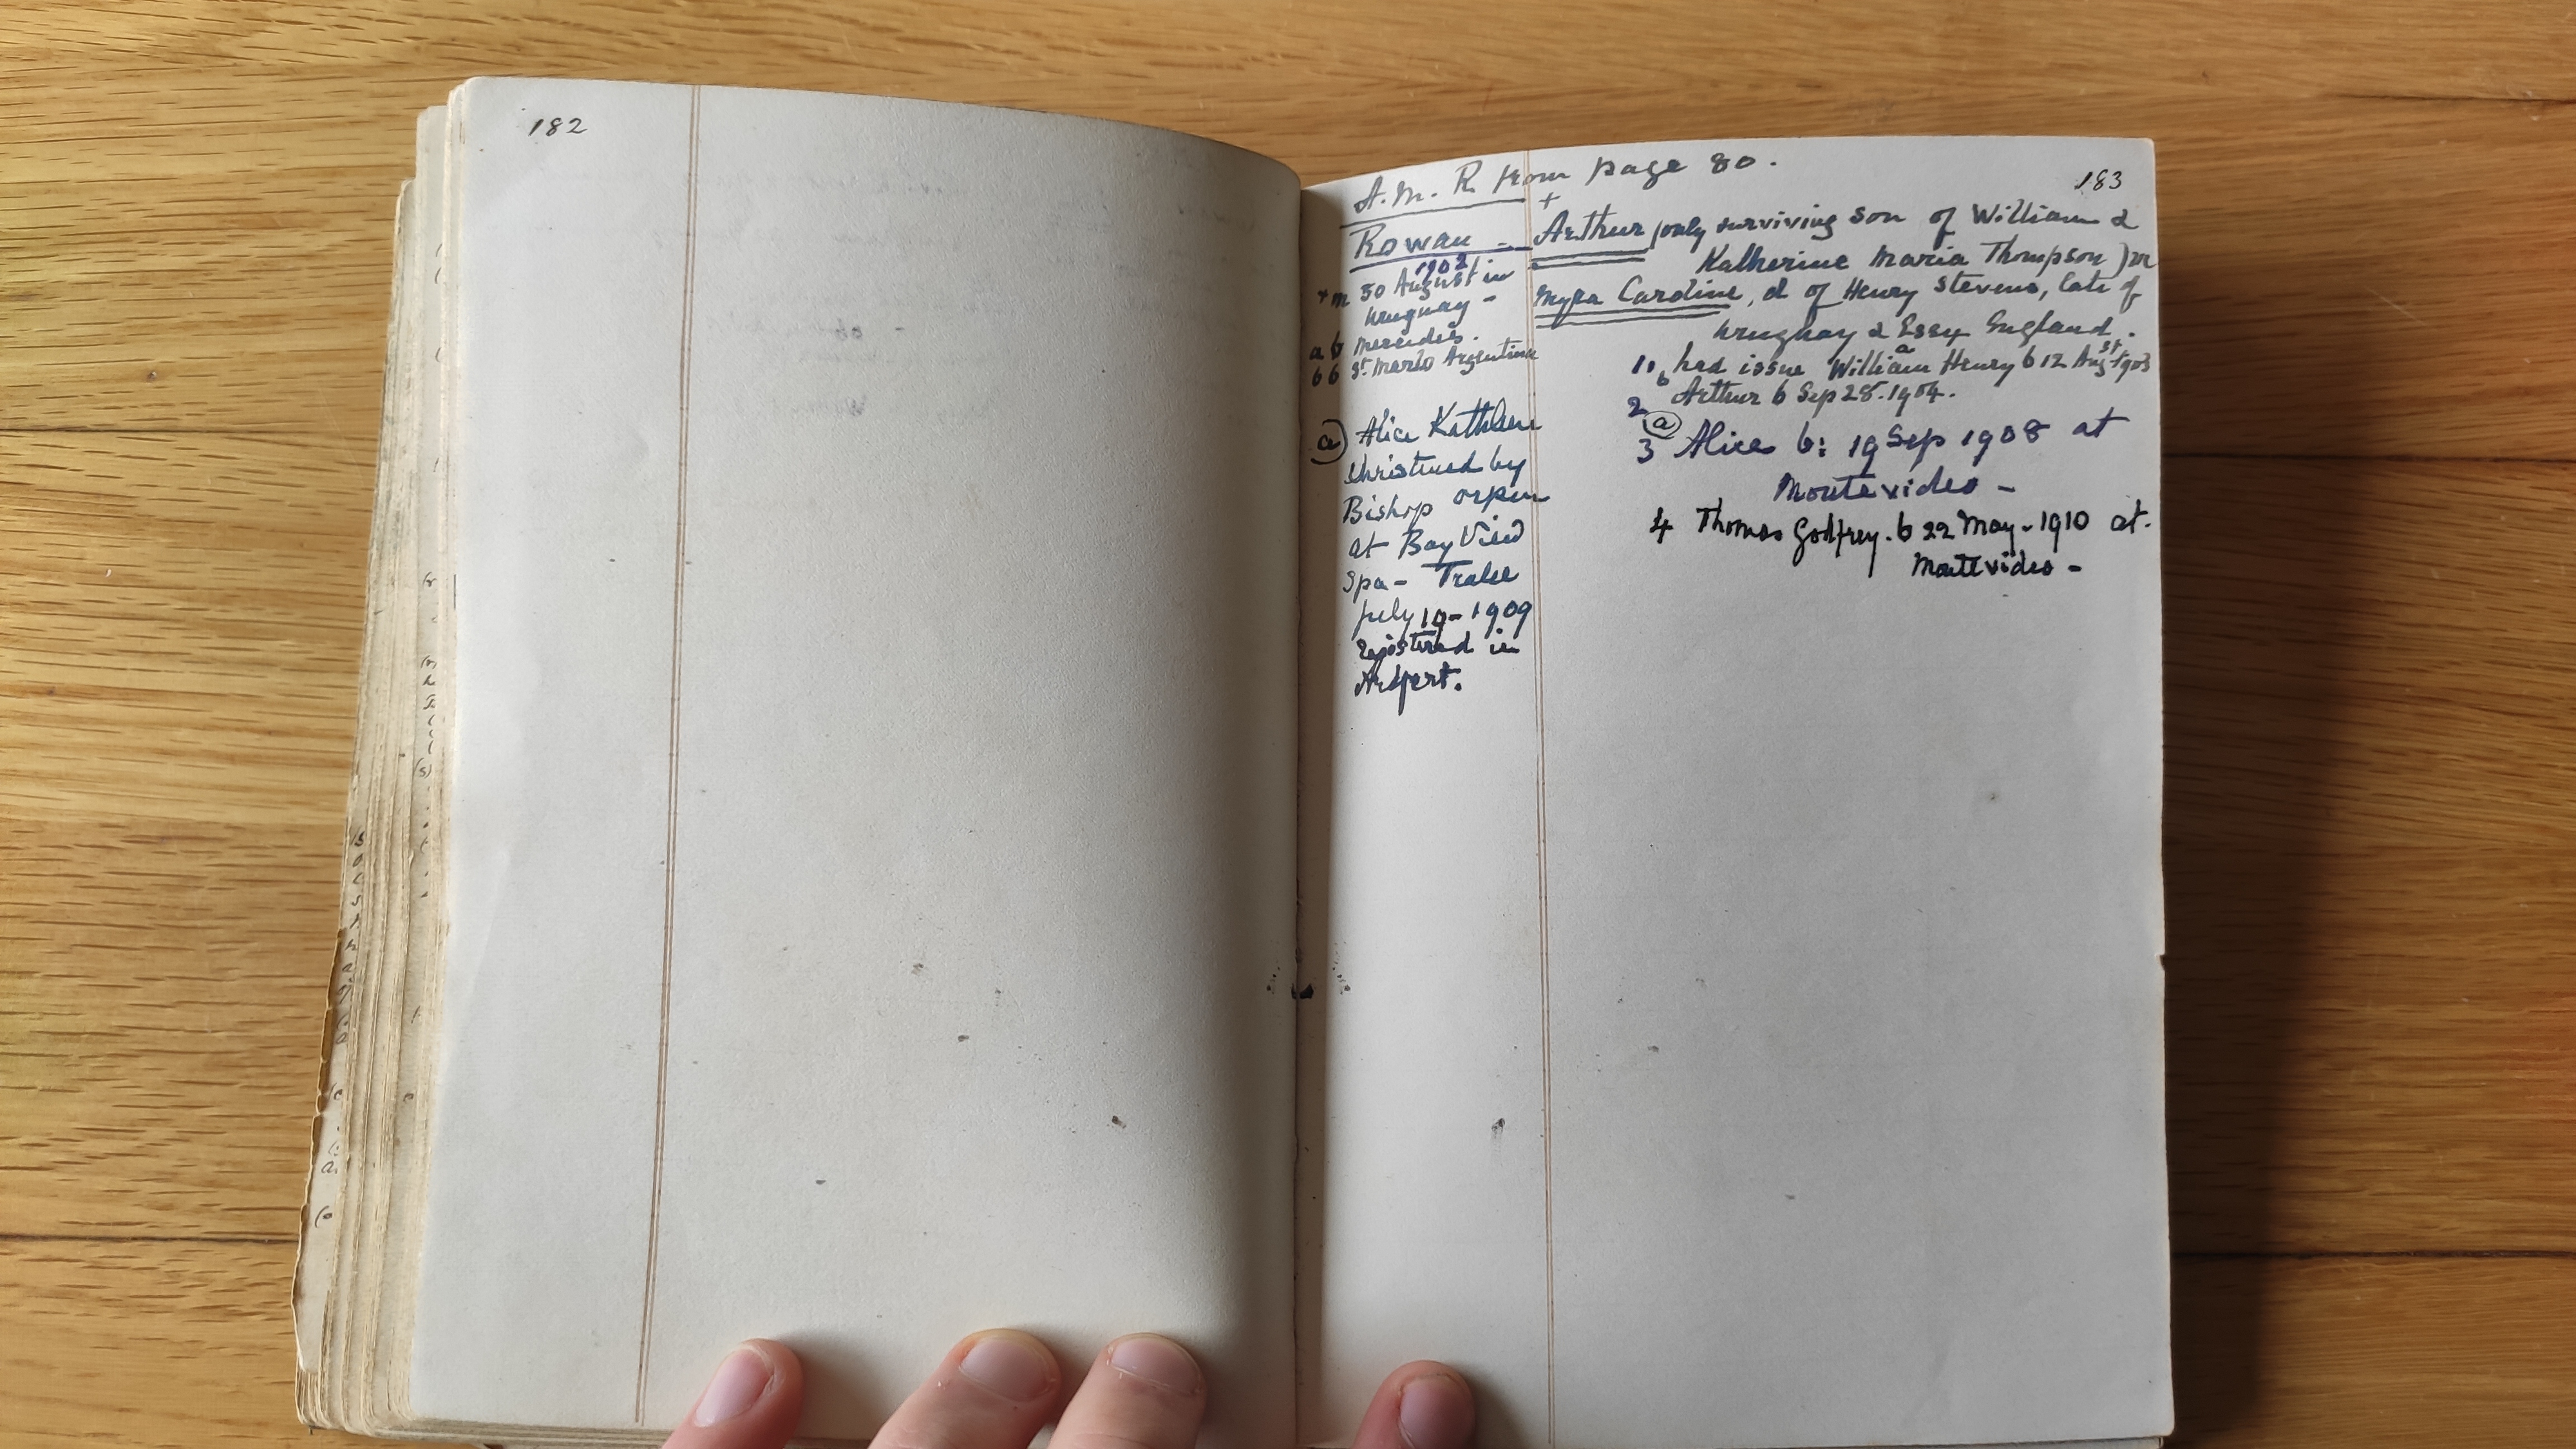 182
A.M. R from page 80.
183
Rowan - Arthur (only surviving son of William &
Katherine Maria Thompson) m
Myra Caroline, d of Henry Stevens, late of
Uruguay & Essex England.
1902
+ m 30 August in
Uruguay -
a b Mercedes.
b b St. Argentina
1 had issue William Henry b 12 Augst 1903
2 b Arthur b Sep 28. 1904.
3 (a) Alice b: 19 Sep 1908 at
Montevideo -
4 Thomas Godfrey. b 22 May - 1910 at.
Montevideo -
(a) Alice Kathleen
Christened by
Bishop Orpen
at Bay View
Spa - Tralee
July 19 - 1909
Registered in
Ardfert.